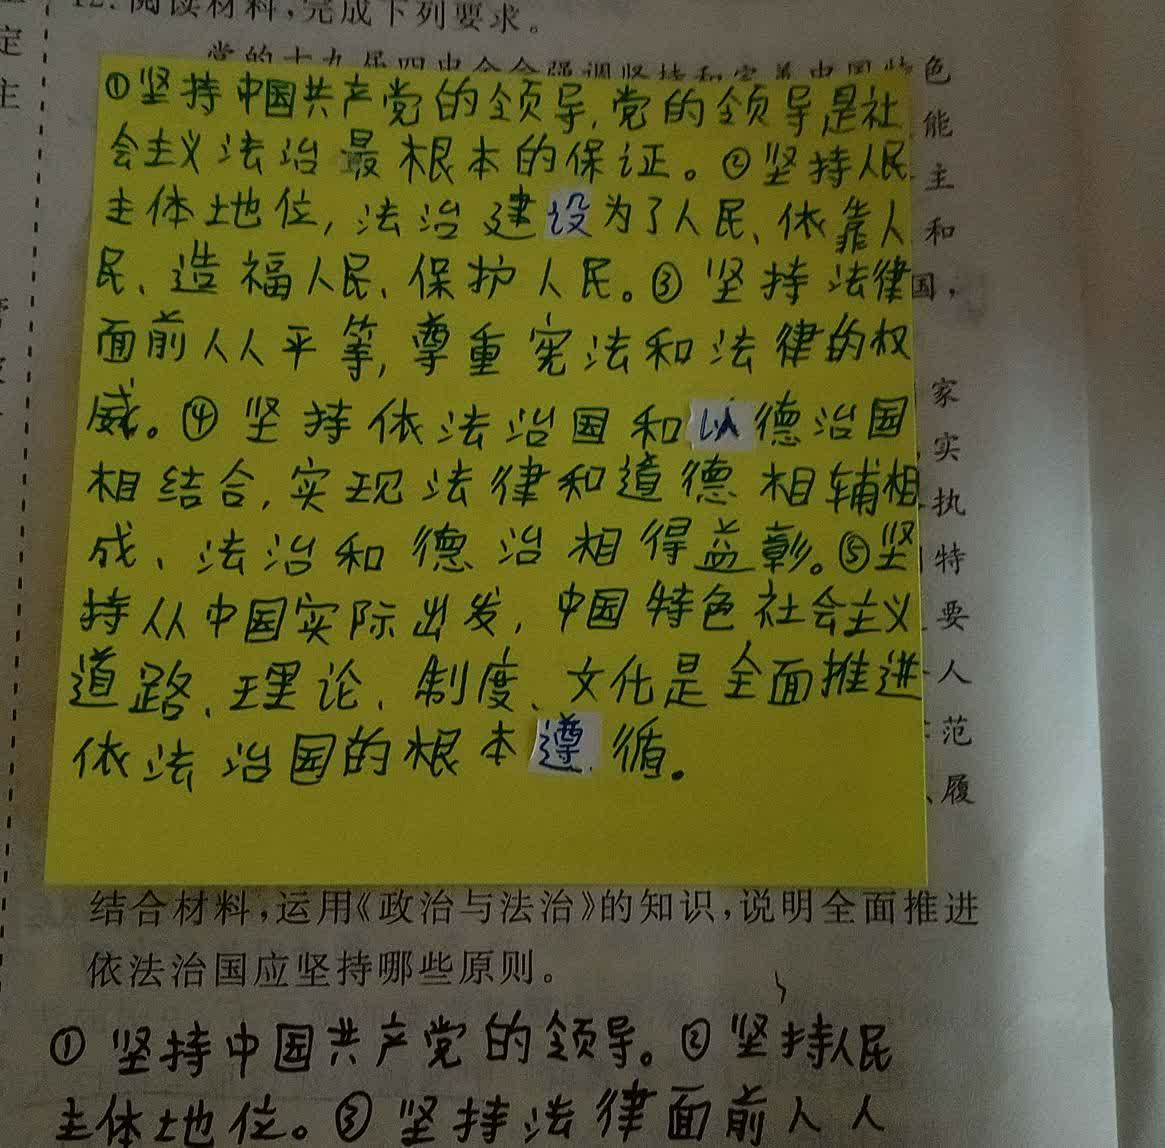 12. 阅读材料，完成下列要求。
定
主
色
①坚持中国共产党的领导，党的领导是社
能
会主义法治最根本的保证。②坚持人民
主
主体地位，法治建设为了人民、依靠人
和
民、造福人民、保护人民。③坚持法律
国，
面前人人平等，尊重宪法和法律的权
家
威。④坚持依法治国和以德治国
实
相结合，实现法律和道德相辅相
执
成、法治和德治相得益彰。⑤坚
特
持从中国实际出发，中国特色社会主义
要
道路、理论、制度、文化是全面推进
人
依法治国的根本遵循。
范
履
结合材料，运用《政治与法治》的知识，说明全面推进
依法治国应坚持哪些原则。
①坚持中国共产党的领导。②坚持人民
主体地位。③坚持法律面前人人